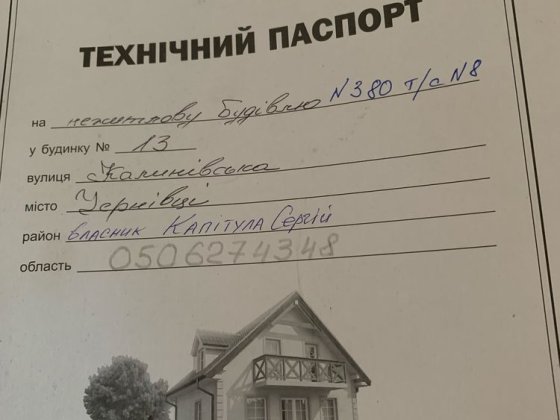 ТЕХНІЧНИЙ ПАСПОРТ
на нежитлову будівлю N380 т/с N8
у будинку № 13
вулиця Калинівська
місто Чернівці
район власник Капітула Сергій
область 0506274348